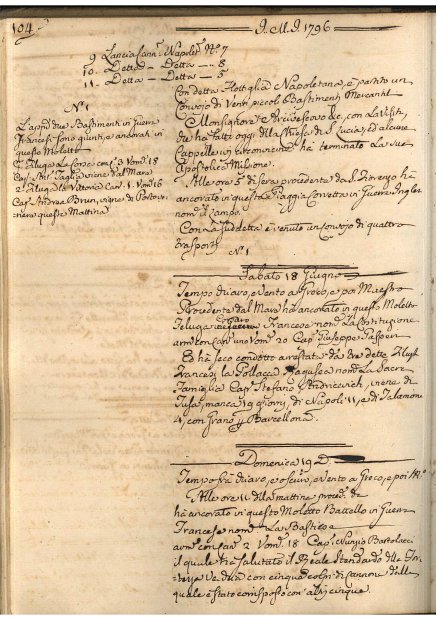 104
I. M. I. 1796
9 Lancia Cann.ra Napolet.a N.o 7
10. Detta - Detta - .. 8
11. Detta - Detta - 5
Con detta Flottiglia Napoletana, è partito un
Convojo di Venti piccoli Bastimenti Mercantili
Monsignore Arcivescovo &c. con la Visita,
che ha fatti oggi alla Chiesa di S. Lucia, ed alcune
Cappelle ha terminato la sua
Apostolica Missione.
Alle ore 5 di sera procedente da S. Fiorenzo ha
ancorato in questa Piaggia Corvetta in Guerra Ingle:
nom.
Con la sudetta è venuto un Convojo di quattro
trasporti
N.o 1
N.o 1
L'app.o due Bastimenti in Guerra
Francesi sono giunti, e ancorati in
questo Moletto
Feluga La Corse con 3 Vom.i 18
Cap. Ant. Taglia viene dal Mare
2. Feluga la Vittoria Can. 1 Vom.i 16
Cap. Andrea Brun, viene di Portovec.
nere questa Mattina
Sabato 18 Giugno
Tempo chiaro, e Vento a Greco, e poi Maestro
Procedente dal Mare ha ancorato in questo Moletto
Feluga Corsaro Francese nom.a La Costituzione
arm. con Can. uno Vom.i 20 Cap. Giuseppe
Ed hà seco condotto arrestata da due dette Filug.
Francesi la Pollacca Ragusea nom.a La Sacra
Famiglia Cap. Stefano Andricevich, viene di
Tusa, manca 19 giorni, di Napoli 11, e di Talamone
4, con Grano p. Barcellona.
Domenica 19 D.o
Tempo frà chiaro, e oscuro, e Vento a Greco, e poi M.o
Alle ore 11 della mattina proced.e de
ha ancorato in questo Moletto Battello in Guerra
Francese nom.o La Bastide
arm. con Can. 2 Vom.i 18 Cap. Nunzio Bartolacci
il quale hà salutato il Reale Stendardo
con cinque colpi di Cannone dalle
quale è stato corrisposto con altri cinque.